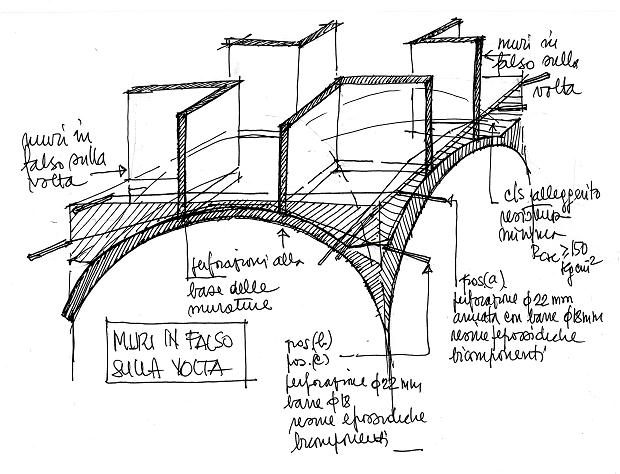 muri in
falso sulla
volta
muri in
falso sulla
volta
cls alleggerito
resistenza
minima
Rck ≥ 150
kg cm-2
perforazioni alla
base delle
murature
pos(a)
perforazione ϕ 22 mm
armata con barre ϕ18mm
resine epossidiche
bicomponenti
MURI IN FALSO
SULLA VOLTA
pos(b)
pos.(c)
perforazione ϕ 22 mm
barre ϕ18
resine epossidiche
bicomponenti